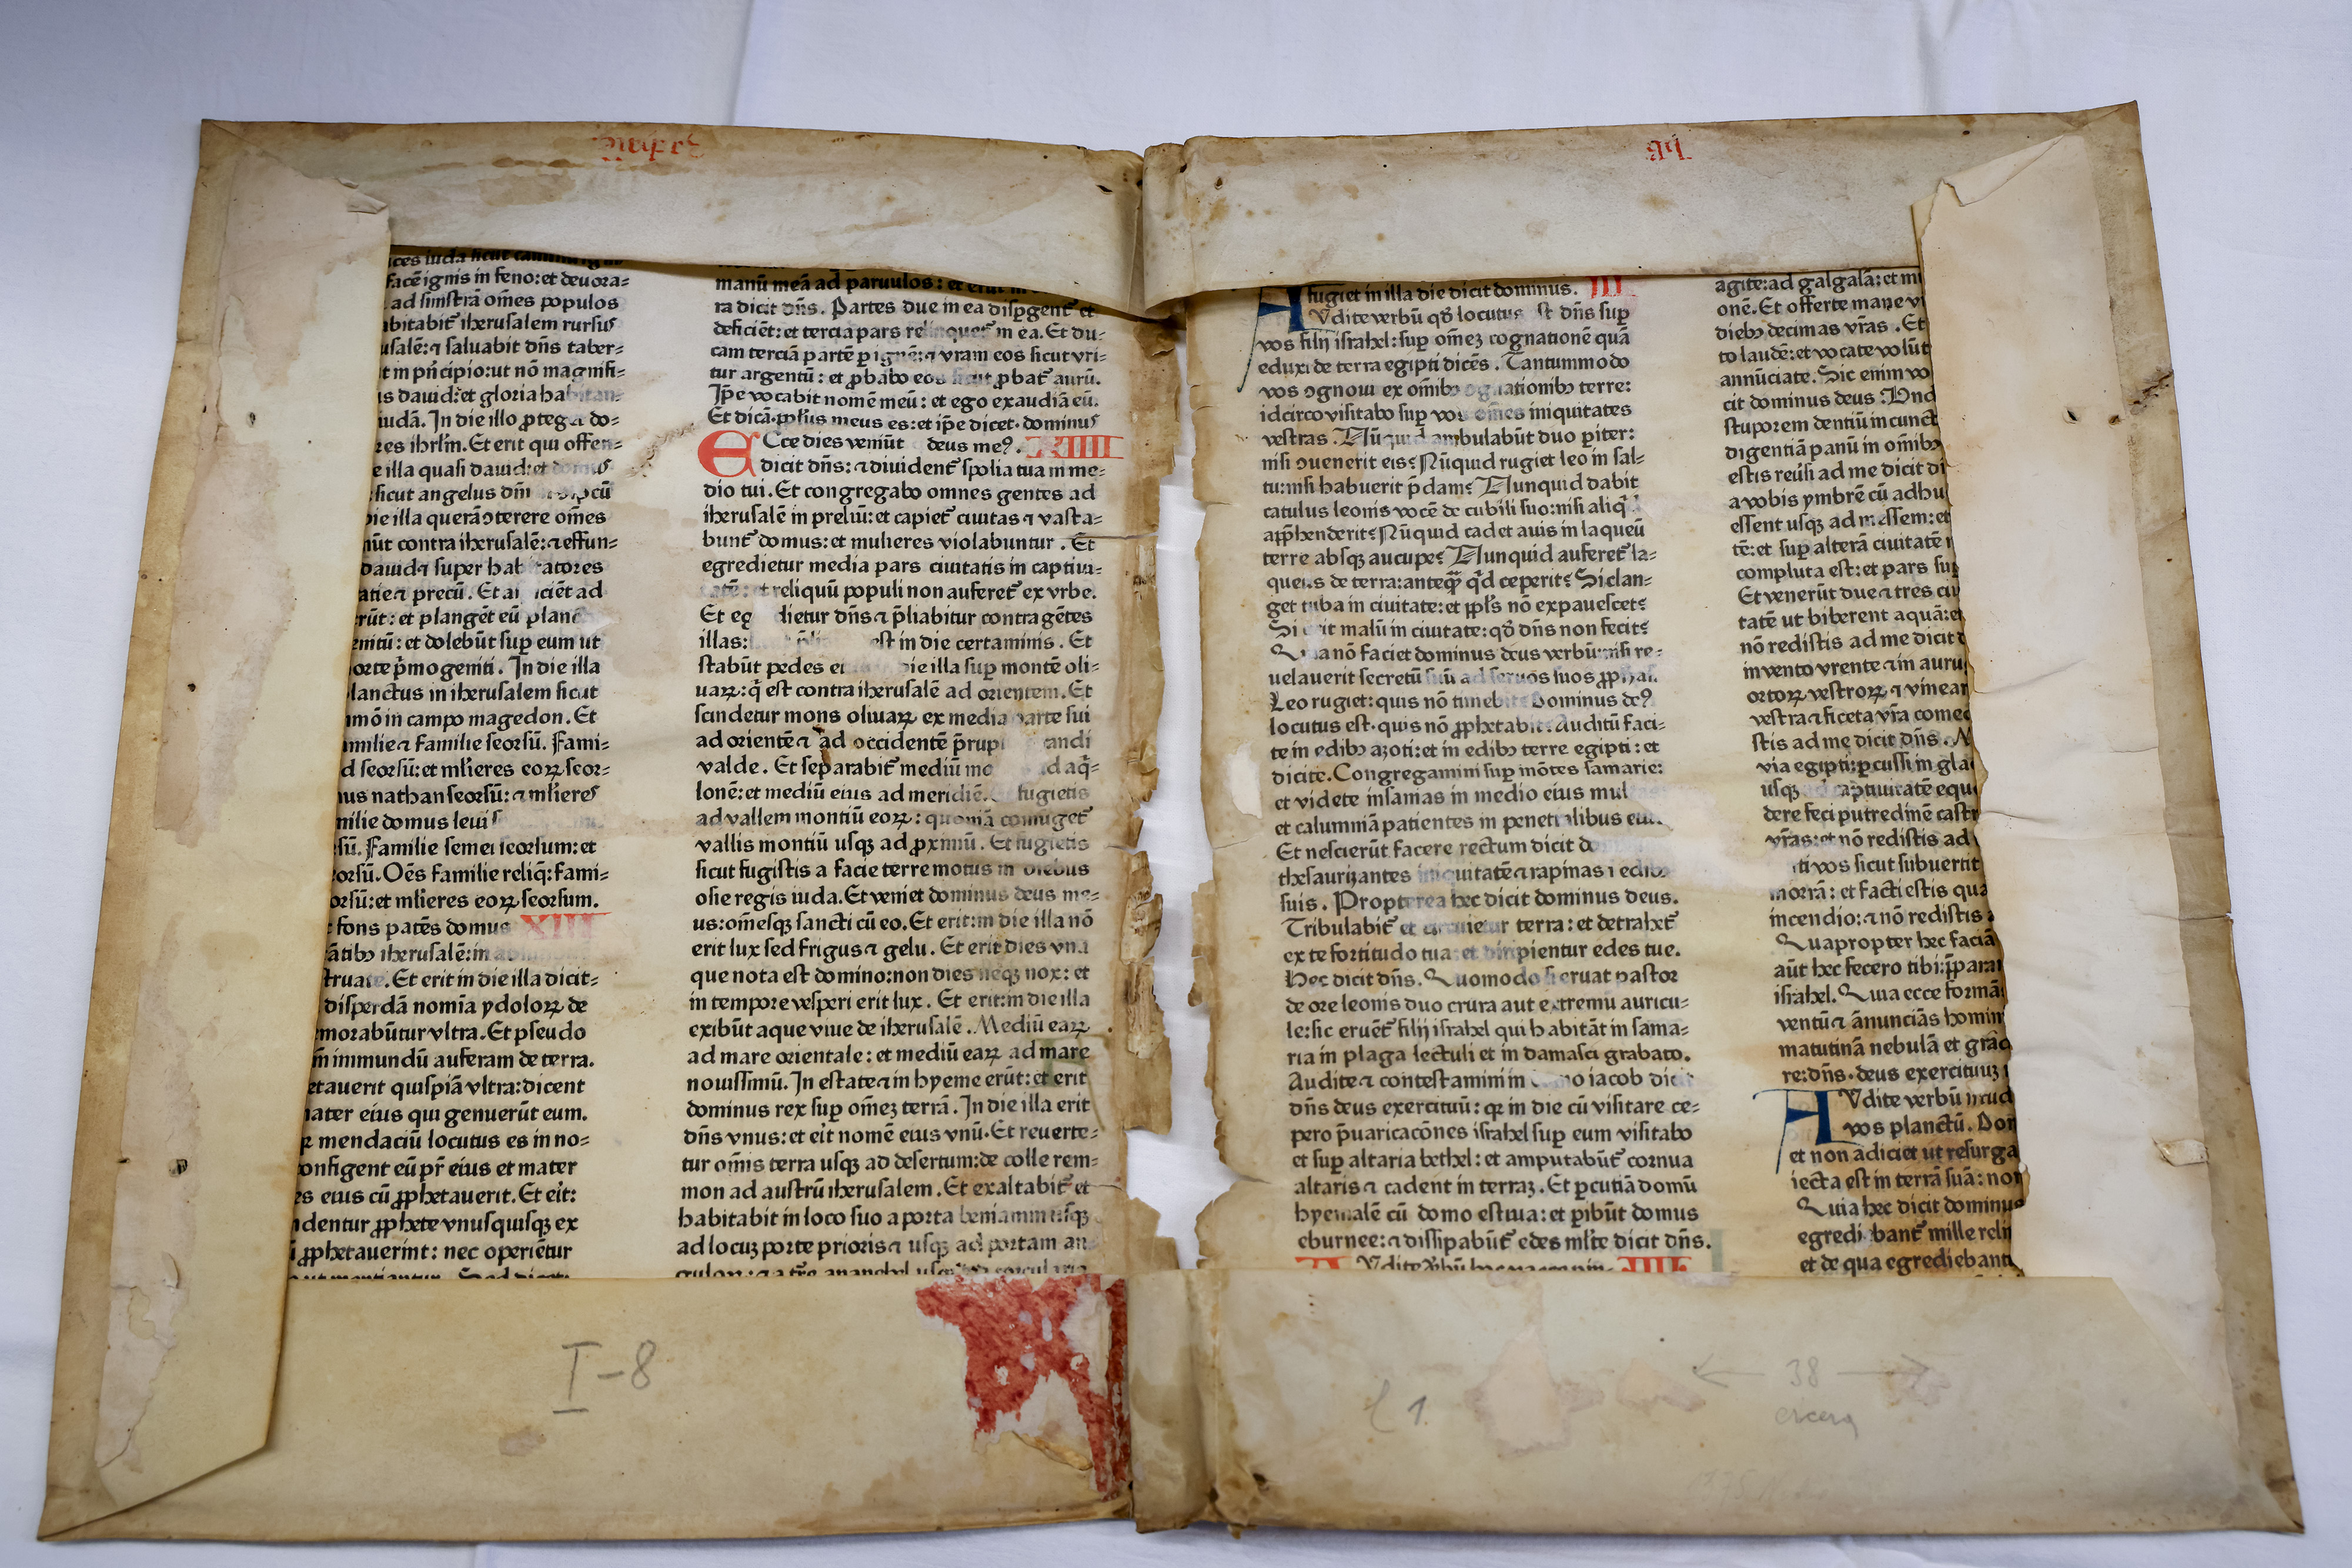 facē ignis in feno: et deuora=
ad sinistrā om̄es populos
abitabit̄ iherusalem rursus
usalē: ⁊ saluabit dn̄s taber=
t in pn̄cipio: ut nō magnifi=
is dauid: et gloria habitan
iudā. In die illo ꝓtegꝫ do=
res ihrlm̄. Et erit qui offen=
e illa quasi dauid: et domus
sicut angelus dn̄i
die illa querā ꝯterere om̄es
niūt contra iherusalē: ⁊ effun=
dauid ⁊ super hab atores
atie ⁊ precū. Et
rūt: et plangēt eū planc
enitū: et dolebūt suꝑ eum ut
orte pͥmogeniti. In die illa
lanctus in iherusalem sicut
mō in campo magedon. Et
amilie ⁊ familie seorsū. Fami=
d seorsū: et ml̄ieres eoꝝ seor=
us nathan seorsū: ⁊ ml̄ieres
milie domus leui
sū. Familie semei seorsum: et
orsū. Oēs familie reliq̄: fami=
orsū: et ml̄ieres eoꝝ seorsum.
fons patēs domus XIII
ātibꝰ iherusalē: in
struat. Et erit in die illa dicit=
disperdā nomīa ydoloꝝ de
morabūtur vltra. Et pseudo
m̄ immundū auferam de terra.
etauerit quispiā vltra: dicent
ater eius qui genuerūt eum.
mendaciū locutus es in no=
onfigent eū pr̄ eius et mater
es eius cū ꝓphetauerit. Et eit̄:
dentur ꝓphete vnusquisqꝫ ex
ꝓphetauerint: nec operiētur
manū meā ad paruulos:
ra dicit dn̄s. Partes due in ea disꝑgent̄ et
deficiēt: et tercia pars relinquet̄ in ea. Et du=
cam terciā partē ꝑ ignē: ⁊ vram eos sicut vri=
tur argentū: et ꝓbabo eos sicut ꝓbat̄ aurū.
Ip̄e vocabit nomē meū: et ego exaudiā eū.
Et dicā. ppl̄us meus es: et ip̄e dicet. dominus
Ecce dies veniūt deus meꝰ. XIIII
dicit dn̄s: ⁊ diuident̄ spolia tua in me=
dio tui. Et congregabo omnes gentes ad
iherusalē in preliū: et capiet̄ ciuitas ⁊ vasta=
bunt̄ domus: et mulieres violabuntur. Et
egredietur media pars ciuitatis in captiui=
tatē: et reliquū populi non auferet̄ ex vrbe.
Et eg dietur dn̄s ⁊ p̄liabitur contra gētes
illas: est in die certaminis. Et
stabūt pedes ei die illa suꝑ montē oli=
uaꝝ: q̄ est contra iherusalē ad orientem. Et
scindetur mons oliuaꝝ ex media parte sui
ad orientē ⁊ ad occidentē p̄rup andi
valde. Et separabit̄ mediū mo ad aq̄=
lonē: et mediū eius ad meridiē. fugietis
ad vallem montiū eoꝝ: quoniā coniuget̄
vallis montiū usqꝫ ad ꝓximū. Et fugietis
sicut fugistis a facie terre motus in diebus
osie regis iuda. Et veniet dominus deus me=
us: om̄esqꝫ sancti cū eo. Et erit: in die illa nō
erit lux sed frigus ⁊ gelu. Et erit dies vna
que nota est domino: non dies neqꝫ nox: et
in tempore vesperi erit lux. Et erit: in die illa
exibūt aque viue de iherusalē. Mediū eaꝝ
ad mare orientale: et mediū eaꝝ ad mare
nouissimū. In estate ⁊ in hyeme erūt: et erit
dominus rex suꝑ om̄eꝫ terrā. In die illa erit
dn̄s vnus: et eit̄ nomē eius vnū. Et reuerte=
tur om̄is terra usqꝫ ad desertum: de colle rem=
mon ad austrū iherusalem. Et exaltabit̄ et
habitabit in loco suo a porta beniamin usqꝫ
ad locuꝫ porte prioris ⁊ usqꝫ ad portam an
I-8
fugiet in illa die dicit dominus. III
AVdite verbū qd̄ locutus est dn̄s suꝑ
vos filij israhel: suꝑ om̄eꝫ cognationē quā
eduxi de terra egipti dicēs. Tantummodo
vos ꝯgnoui ex om̄ibꝰ ꝯgnationibꝰ terre:
idcirco visitabo suꝑ vos om̄es iniquitates
vestras. Nūquid ambulabūt duo ꝑiter:
nisi ꝯuenerit eis? Nūquid rugiet leo in sal=
tu: nisi habuerit p̄dam? Nunquid dabit
catulus leonis vocē de cubili suo: nisi aliq̄
app̄henderit? Nūquid cadet auis in laqueū
terre absqꝫ aucupe? Nunquid auferet̄ la=
queus de terra: anteq̄ꝫ qͥd ceperit? Si clan=
get tuba in ciuitate: et ppl̄s nō expauescet?
Si erit malū in ciuitate: qd̄ dn̄s non fecit?
Quia nō faciet dominus deus verbū: nisi re=
uelauerit secretū suū ad seruos suos ꝓphas.
Leo rugiet: quis nō timebit? Dominus deꝰ
locutus est. quis nō ꝓphetabit? Auditū faci=
te in edibꝰ azoti: et in edibꝰ terre egipti: et
dicite. Congregamini suꝑ mōtes samarie:
et videte insanias in medio eius mul
et calumniā patientes in penetralibus eius.
Et nescierūt facere rectum dicit do
thesaurizantes iniquitatē ⁊ rapinas ī edibꝰ
suis. Propterea hec dicit dominus deus.
Tribulabit̄ et circuietur terra: et detrahet̄
ex te fortitudo tua: et diripientur edes tue.
Hec dicit dn̄s. Quomodo si eruat pastor
de ore leonis duo crura aut extremū auricu=
le: sic eruēt̄ filij israhel qui habitāt in sama=
ria in plaga lectuli et in damasci grabato.
Audite ⁊ contestamini in domo iacob dicit
dn̄s deus exercituū: qꝛ in die cū visitare ce=
pero p̄uaricacōnes israhel suꝑ eum visitabo
et suꝑ altaria bethel: et amputabūt̄ cornua
altaris ⁊ cadent in terraꝫ. Et ꝑcutiā domū
hyemalē cū domo estiua: et ꝑibūt domus
eburnee: ⁊ dissipabūt̄ edes ml̄te dicit dn̄s.
IIII
agite: ad galgalā: et m
onē. Et offerte mane vi
diebꝰ decimas vr̄as. Et
to laudē: et vocate volūt
annūciate. Sic enim vo
cit dominus deus: Vnd
stuporem dentiū in cunct
digentiā panū in om̄ibꝰ
estis reūsi ad me dicit d
a vobis ymbrē cū adhu
essent usqꝫ ad messem: et
tē: et suꝑ alterā ciuitatē
compluta est: et pars suꝑ
Et venerūt due ⁊ tres ciu
tatē ut biberent aquā: et
nō redistis ad me dicit d
in vento vrente ⁊ in auru
ortoꝝ vestroꝝ ⁊ vinear
vestra ⁊ ficeta vr̄a comed
stis ad me dicit dn̄s. M
via egipti: ꝑcussi in gla
usqꝫ captiuitatē equ
dere feci putredinē castr
vr̄as: et nō redistis ad
ti vos sicut subuertit
morrā: et facti estis qua
incendio: ⁊ nō redistis
Quapropter hec faciā
aūt hec fecero tibi: p̄para
israhel. Quia ecce formā
ventū ⁊ ānunciās homin
matutinā nebulā et grad
re: dn̄s. deus exercituuꝫ
AVdite verbū istud
vos planctū. Dom
et non adiciet ut resurga
iecta est in terrā suā: non
Quia hec dicit dominus
egredi bant̄ mille relin
et de qua egrediebant
1.
← 38 →